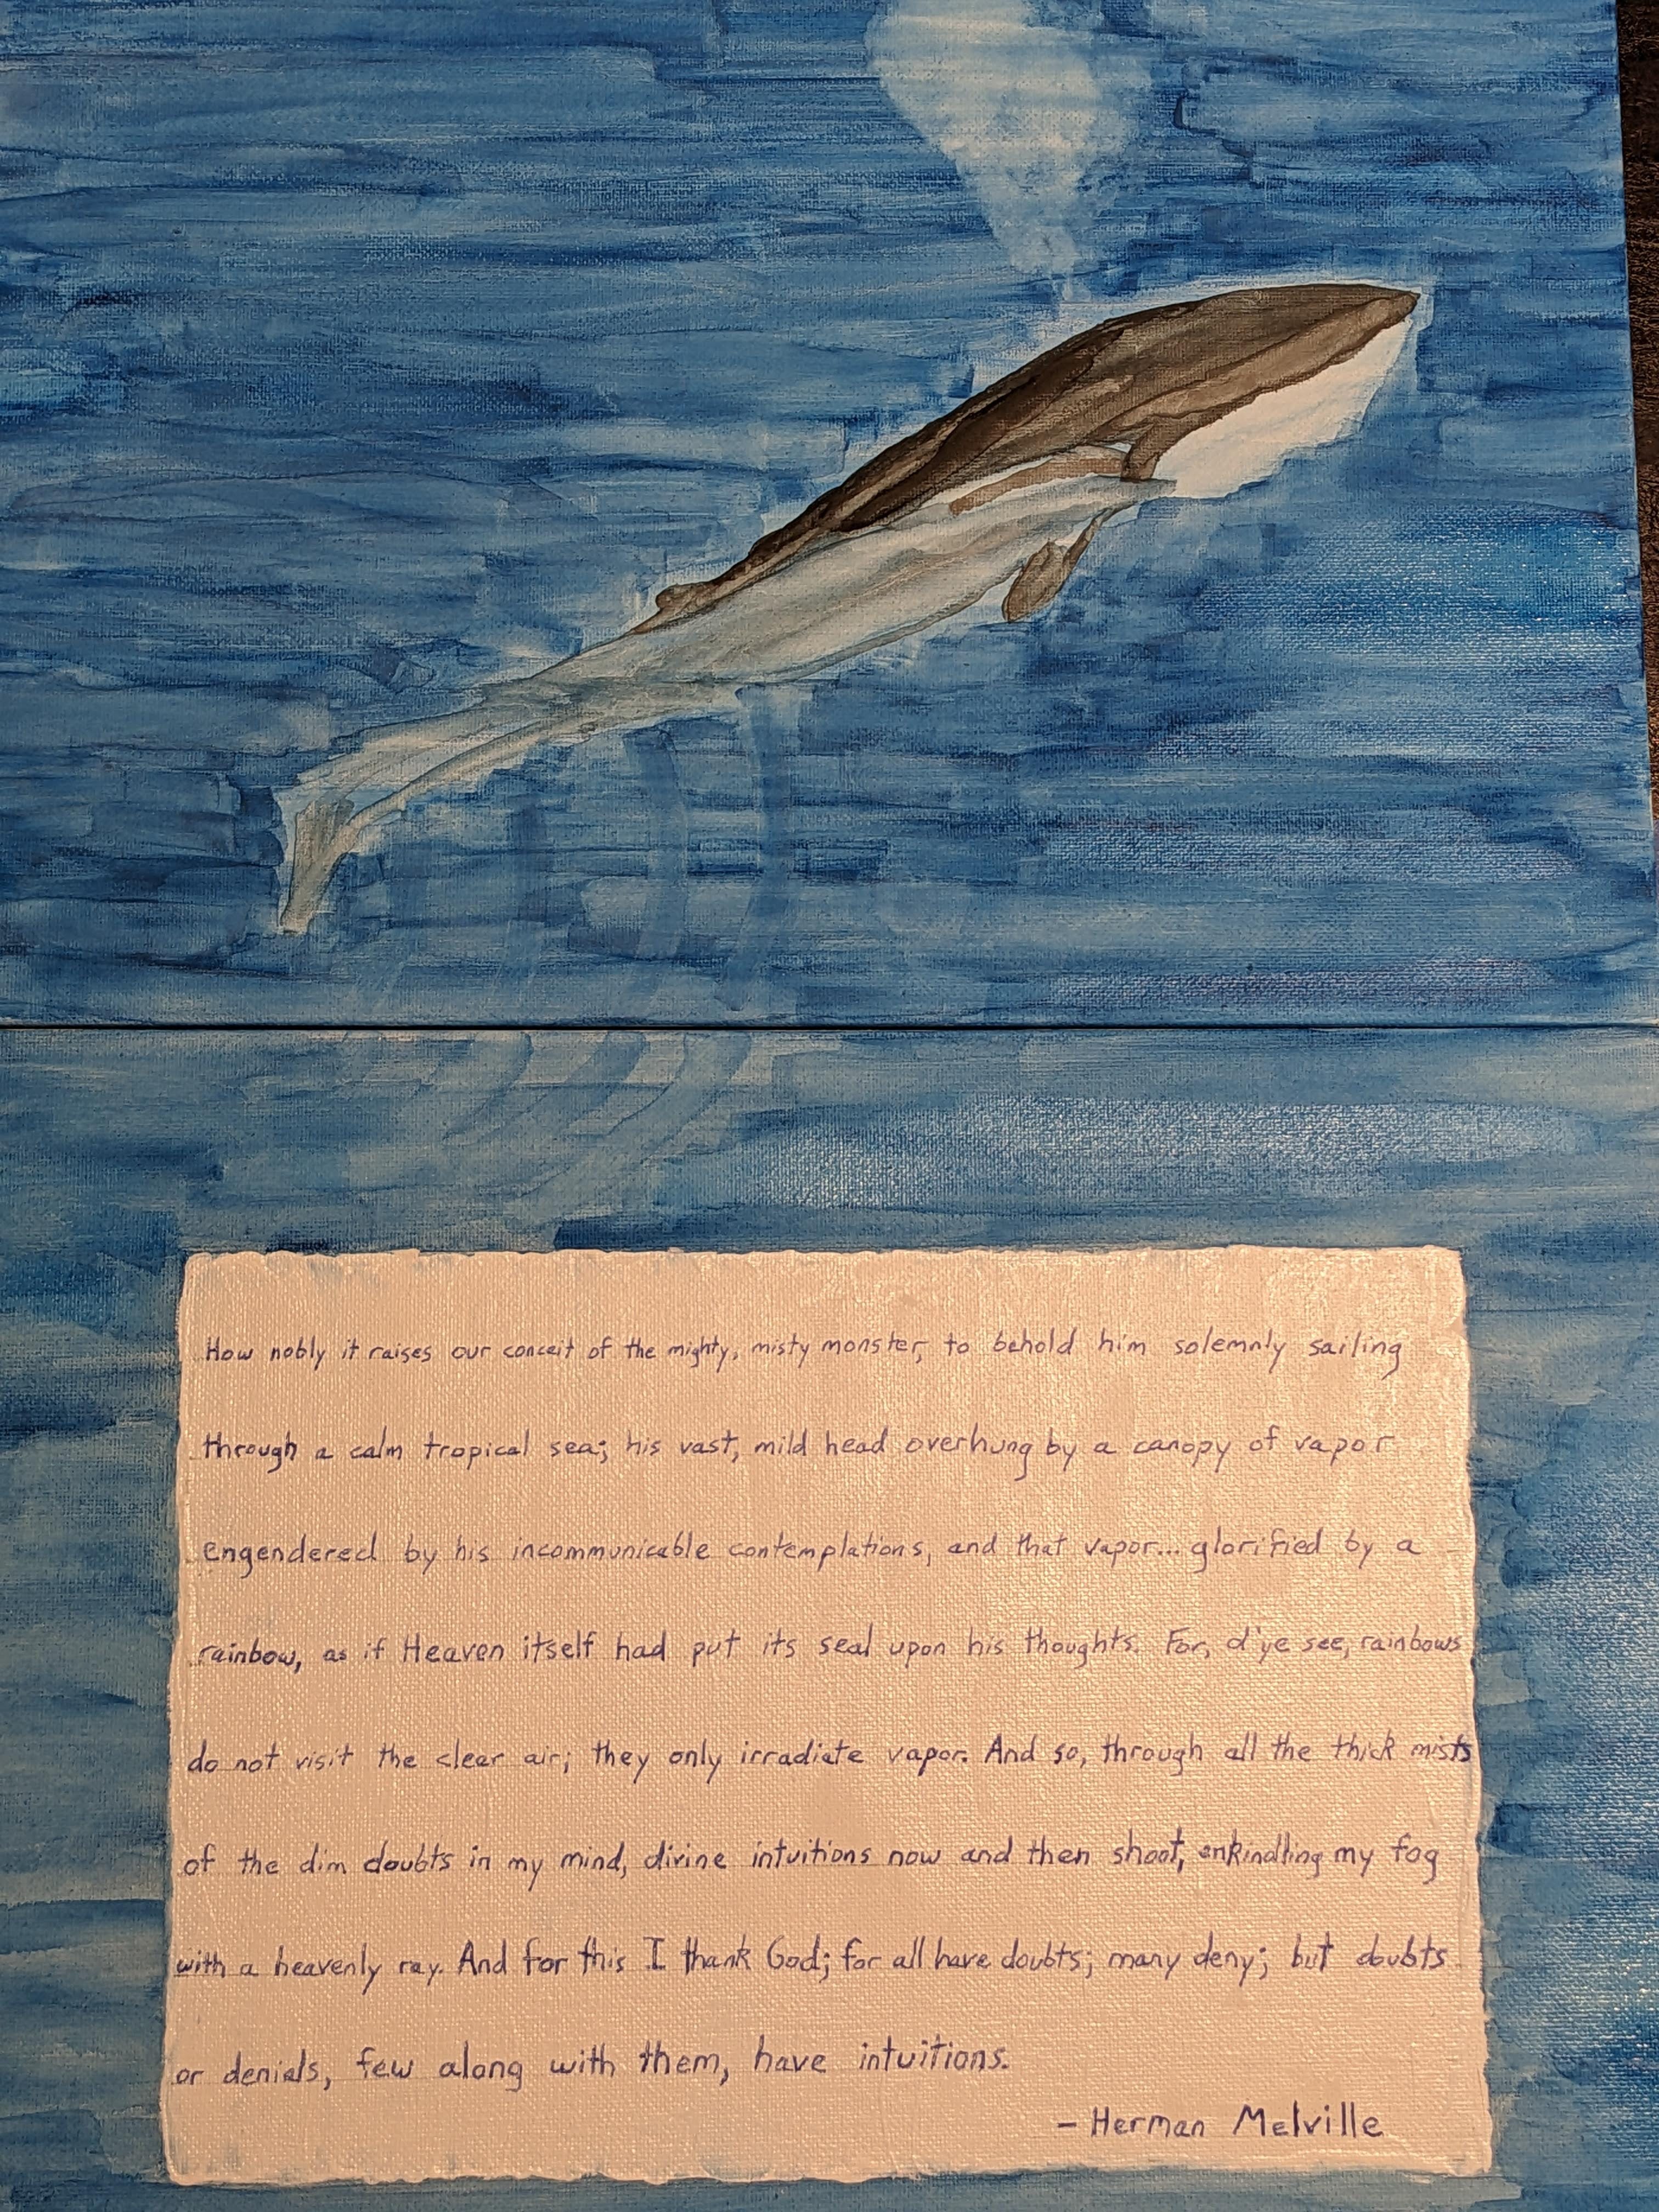 How nobly it raises our conceit of the mighty, misty monster, to behold him solemnly sailing
through a calm tropical sea; his vast, mild head overhung by a canopy of vapor
engendered by his incommunicable contemplations, and that vapor... glorified by a
rainbow, as if Heaven itself had put its seal upon his thoughts. For, d'ye see, rainbows
do not visit the clear air; they only irradiate vapor. And so, through all the thick mists
of the dim doubts in my mind, divine intuitions now and then shoot, enkindling my fog
with a heavenly ray. And for this I thank God; for all have doubts; many deny; but doubts
or denials, few along with them, have intuitions.
– Herman Melville